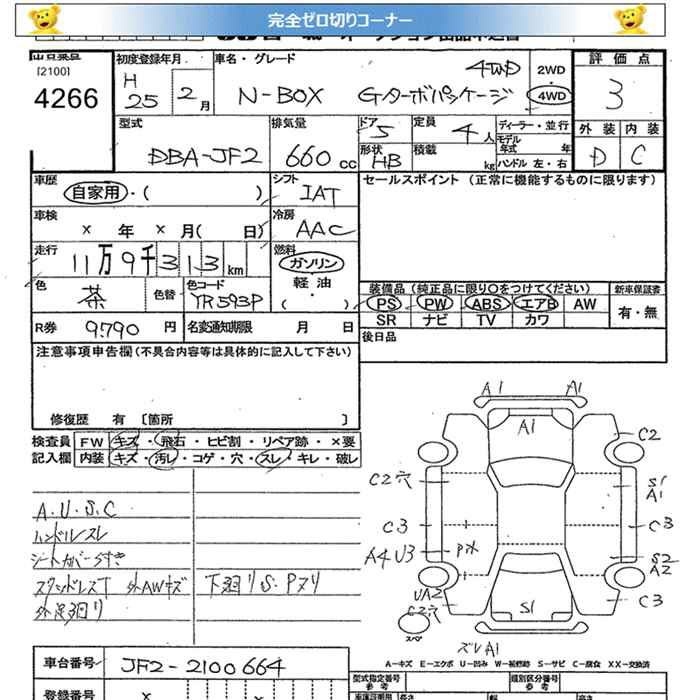 完全ゼロ切りコーナー
[2100]
4266
初度登録年月
H 25 2 月
車名・グレード
N-BOX Gターボパッケージ 4WD
2WD
4WD
評価点
3
外装 内装
D C
型式
DBA-JF2
排気量
660 cc
ドア 5
形状 HB
定員 4 人
積載 kg
ディーラー・並行
モデル年式 年
ハンドル 左・右
車歴
自家用・( )
シフト
IAT
車検
× 年 × 月( 日)
冷房
AAC
走行
11万9千313 km
燃料
ガソリン
軽油
( )
色
茶
色替
色コード
YR593P
R券 9790 円
名変通知期限 月 日
セールスポイント (正常に機能するものに限ります)
装備品(純正品に限り○をつけてください)
PS PW ABS エアB AW
SR ナビ TV カワ
新車保証書
有・無
後日品
注意事項申告欄(不具合内容等は具体的に記入して下さい)
修復歴 有 〔箇所 〕
検査員記入欄
FW キズ・飛石・ヒビ割・リペア跡・×要
内装 キズ・汚レ・コゲ・穴・スレ・キレ・破レ
A.U.S.C
ハンドルスレ
シートカバーつき
スタッドレスT 外AWキズ
外足廻り
下廻りS.Pヌリ
A1 A1
A1
C2
C2穴
S1
A1
C3
C3
A4 U3
S2
A2
UA2
C2穴
C3
S1
スペ
ズレA1
A-キズ E-エクボ U-凹み W-補修跡 S-サビ C-腐食 XX-交換済
車台番号 JF2-2100664
登録番号
型式指定番号
参考
類別区分番号
参考